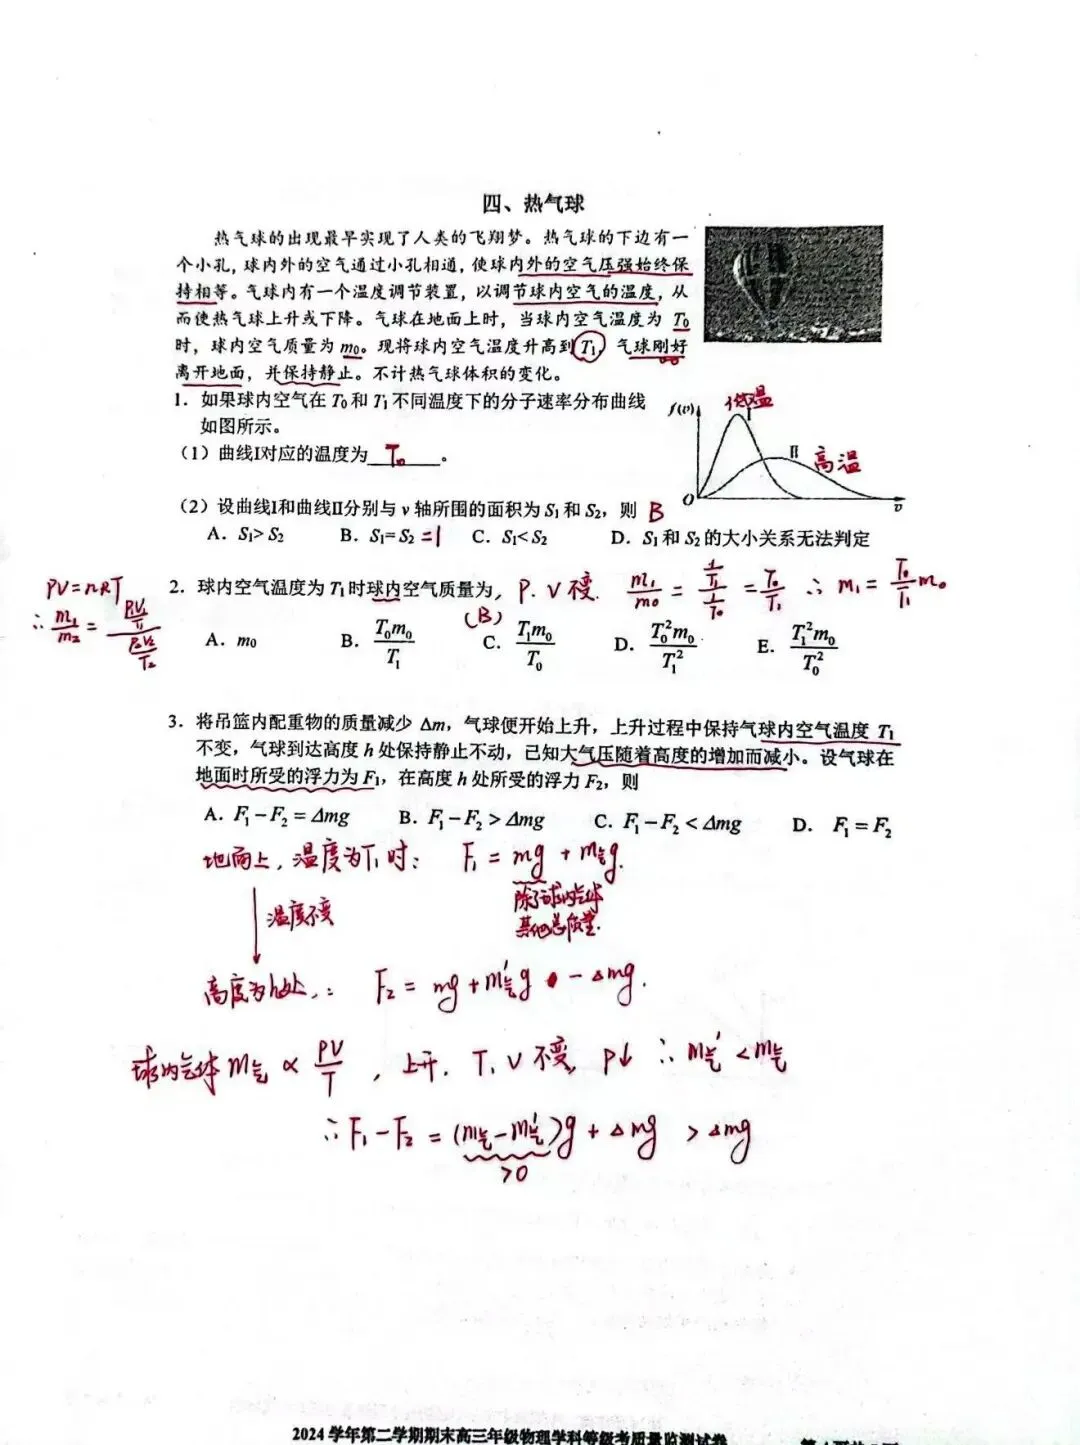 四、热气球
热气球的出现最早实现了人类的飞翔梦。热气球的下边有一
个小孔，球内外的空气通过小孔相通，使球内外的空气压强始终保
持相等。气球内有一个温度调节装置，以调节球内空气的温度，从
而使热气球上升或下降。气球在地面上时，当球内空气温度为 T₀
时，球内空气质量为 m₀。现将球内空气温度升高到 T₁，气球刚好
离开地面，并保持静止。不计热气球体积的变化。
1．如果球内空气在 T₀和 T₁不同温度下的分子速率分布曲线
如图所示。
f(v) 低温
I
II 高温
O v
（1）曲线Ⅰ对应的温度为 T₀ 。
（2）设曲线Ⅰ和曲线Ⅱ分别与 v 轴所围的面积为 S₁ 和 S₂，则 B
A．S₁> S₂ B．S₁= S₂ =1 C．S₁< S₂ D．S₁ 和 S₂ 的大小关系无法判定
2．球内空气温度为 T₁ 时球内空气质量为， P、V 不变. m₁/m₀ = (1/T₁)/(1/T₀) = T₀/T₁ ∴ m₁ = T₀/T₁ m₀
PV=nRT
∴ m₁/m₂ = (P₁V₁/T₁)/(P₂V₂/T₂)
(B)
A．m₀ B．T₀m₀/T₁ C．T₁m₀/T₀ D．T₀²m₀/T₁² E．T₁²m₀/T₀²
3．将吊篮内配重物的质量减少 Δm，气球便开始上升，上升过程中保持气球内空气温度 T₁
不变，气球到达高度 h 处保持静止不动，已知大气压随着高度的增加而减小。设气球在
地面时所受的浮力为 F₁，在高度 h 处所受的浮力 F₂，则
A．F₁－F₂ = Δmg B．F₁－F₂ > Δmg C．F₁－F₂ < Δmg D．F₁ = F₂
地面上，温度为T₁时： F₁ = mg + m气g.
除了球内气体
其他总质量.
温度不变
高度为h处，： F₂ = mg + m气'g - Δmg.
球内气体 m气 ∝ PV/T ，上升. T、V 不变，P↓ ∴ m气' < m气
∴ F₁ - F₂ = (m气 - m气')g + Δmg > Δmg
>0
2024 学年第二学期期末高三年级物理学科等级考质量监测试卷